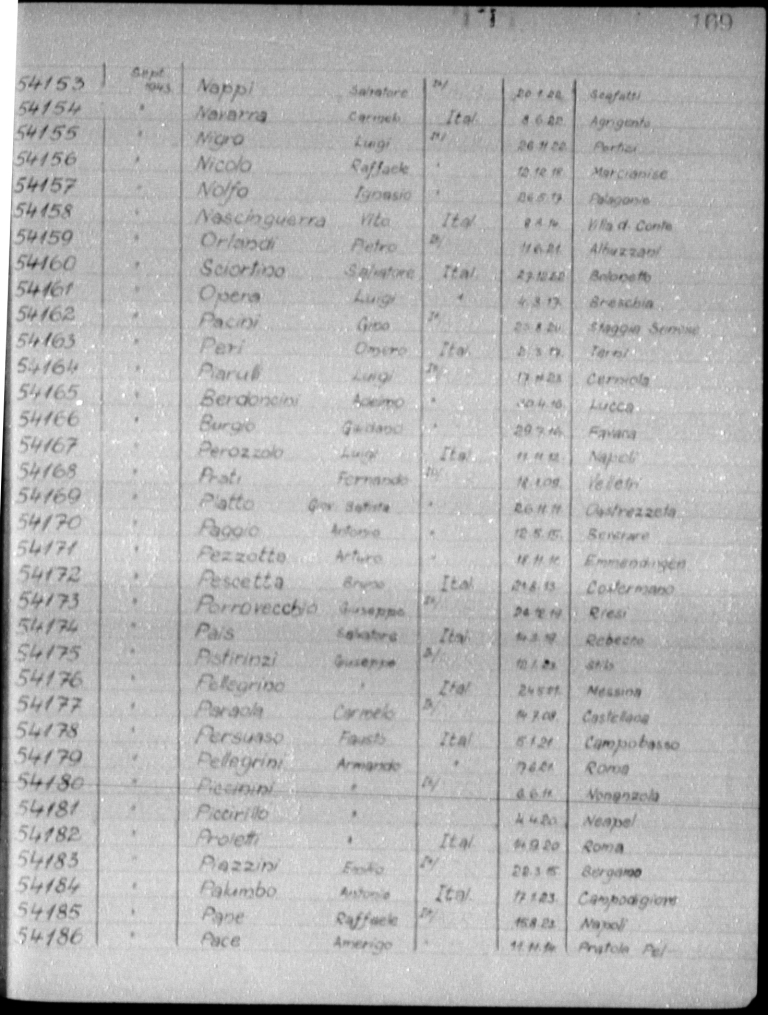 169
54153 Sept. 1943 Nappi Salvatore 20.1.22 Scafatti
54154 " Navarra Carmelo Ital. 8.6.22 Agrigento
54155 " Nigro Luigi 26.11.22 Portici
54156 " Nicolo Raffaele " 12.12.18 Marcianise
54157 " Nolfo Ignasio " 26.5.17 Palagonia
54158 " Nascinguerra Vito Ital. Villa d. Conte
54159 " Orlandi Pietro 11.6.21 Albuzzani
54160 " Sciortino Salvatore Ital. 27.12.22 Bolonetto
54161 " Opera Luigi " 4.3.17 Breschia
54162 " Pacini Gino Staggia Senese
54163 " Peri Omero Ital. Terni
54164 " Piarulli Luigi 17.11.23 Cerniola
54165 " Berdoncini Adelmo " Lucca
54166 " Burgio Gaetano " 29.7.14 Favara
54167 " Perozzolo Luigi Ital. 11.11.12 Napoli
54168 " Prati Fernando 12.1.09 Velletri
54169 " Piatto Giov. Batista " 26.11.11 Castrezzeta
54170 " Paggio Antonio " 12.5.15
54171 " Pezzotta Arturo " 18.11.11 Emmendingen
54172 " Pescetta Bruno Ital. 21.8.13 Costermano
54173 " Porrovecchio Giuseppe Riesi
54174 " Pais Salvatore Ital. 14.3.19 Rebecco
54175 " Pistirinzi Giuseppe 12.1.23 Stilo
54176 " Pellegrino " Ital. 24.5.11 Messina
54177 " Paraola Carmelo 14.7.09 Castellana
54178 " Persuaso Fausto Ital. 5.1.21 Campobasso
54179 " Pellegrini Armando " Roma
54180 " Piccinini " 6.6.11 Nonanzola
54181 " Piccirillo " 4.4.20 Neapel
54182 " Proietti " Ital. 14.9.20 Roma
54183 " Piazzini Emilio 22.3.15 Bergamo
54184 " Palumbo Antonio Ital. 17.1.23 Campodigiove
54185 " Pane Raffaele 15.8.23 Napoli
54186 " Pace Amerigo " 11.11.14 Pratola Pel